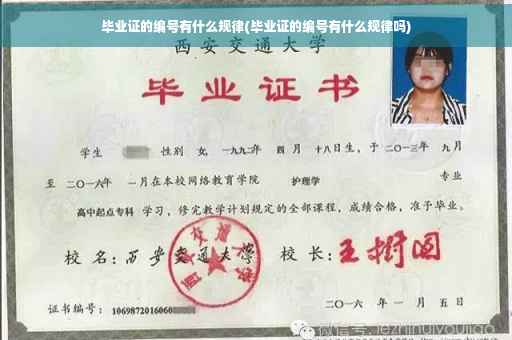 毕业证的编号有什么规律(毕业证的编号有什么规律吗)
西安交通大学
毕业证书
学生 性别 女, 一九九二年 四 月 十八日生, 于 二〇一三年 九月
至 二〇一六年 一月在本校网络教育学院 护理学 专业
高中起点专科 学习, 修完教学计划规定的全部课程, 成绩合格, 准予毕业。
校 名: 西安交通大学 校 长: 王树国
证书编号: 1069872016060
二〇一六 年 一 月 五 日
微信号: jezhihuiyoujiao